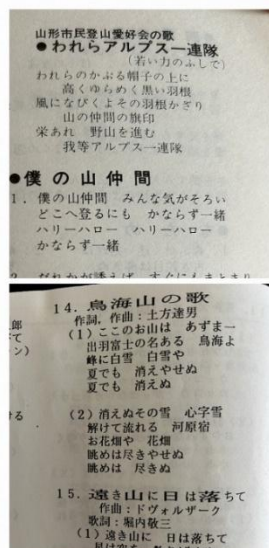 山形市民登山愛好会の歌
●われらアルプス一連隊
(若い力のふしで)
われらのかぶる帽子の上に
高くゆらめく黒い羽根
風になびくよその羽根かざり
山の仲間の旗印
栄あれ 野山を進む
我等アルプス一連隊
●僕の山仲間
1. 僕の山仲間 みんな気がそろい
どこへ登るにも かならず一緒
ハリーハロー ハリーハロー
かならず一緒
14. 鳥海山の歌
作詞, 作曲:土方達男
(1) ここのお山は あずまー
出羽富士の名ある 鳥海よ
峰に白雪 白雪や
夏でも 消えやせぬ
夏でも 消えぬ
(2) 消えぬその雪 心字雪
解けて流れる 河原宿
お花畑や 花畑
眺めは尽きやせぬ
眺めは 尽きぬ
15. 遠き山に日は落ちて
作曲:ドヴォルザーク
歌詞:堀内敬三
(1) 遠き山に 日は落ちて